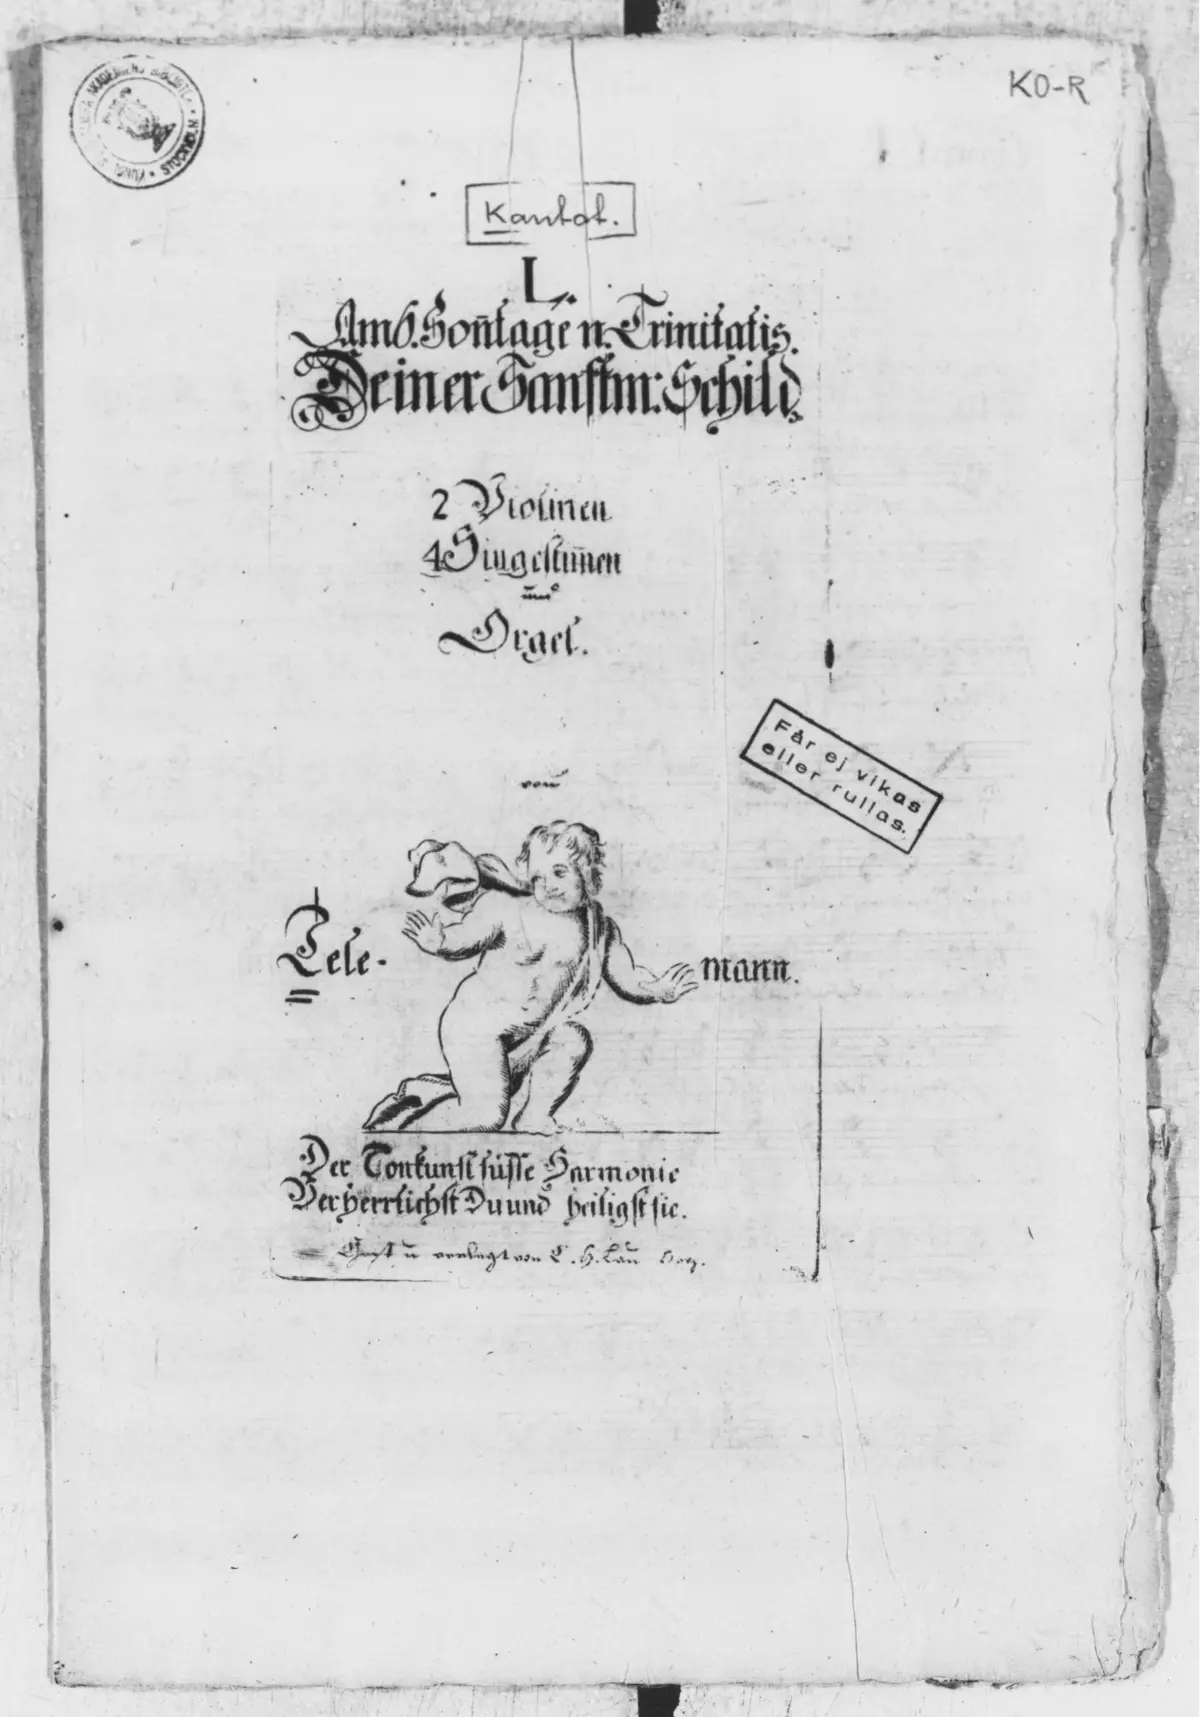 KO-R
STOCKHOLM
Kantat.
L.
Am 6. Soñtage n. Trinitatis.
Deiner Sanftm: Schild.
2 Violinen
4 Singestim̄en
und
Orgel.
von
Får ej vikas
eller rullas.
Tele-
mann.
Der Tonkunst süsse Harmonie
Verherrlichst Du und heiligst sie.
u verlegt von C. H. Lau